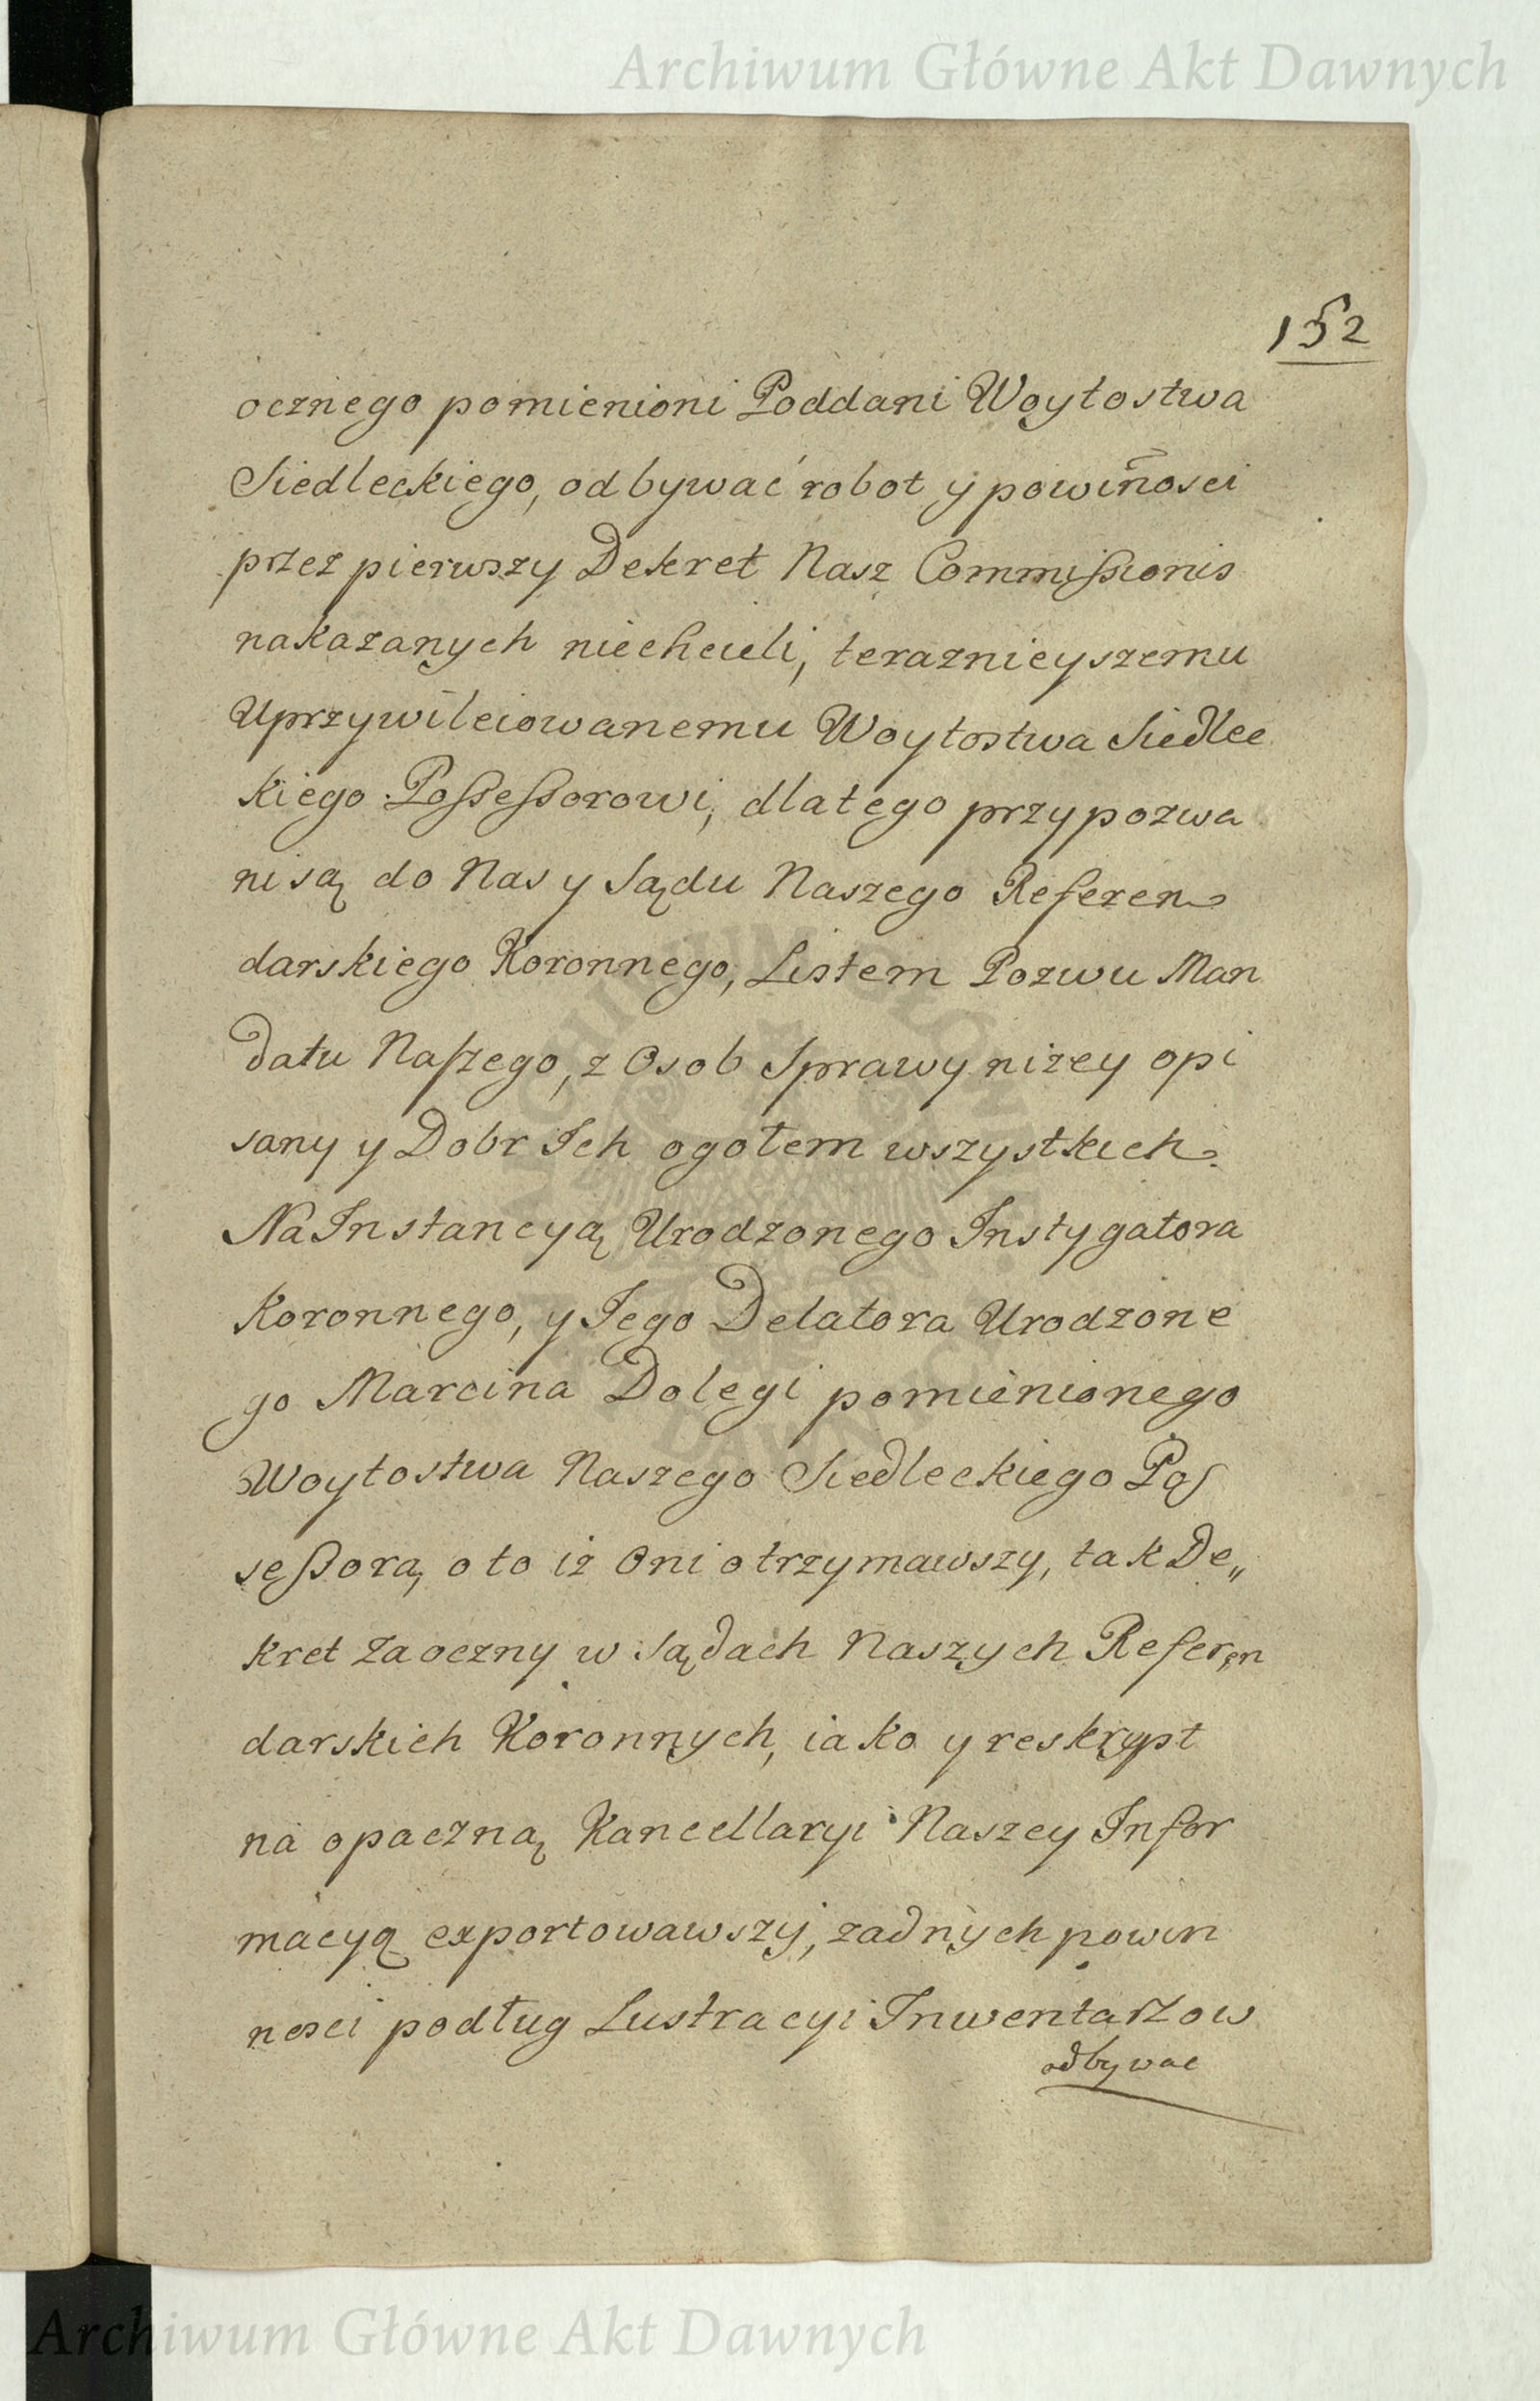 Archiwum Główne Akt Dawnych
152
ocznego pomienioni Poddani Woytostwa
Siedleckiego, odbywać robot ÿ powin̄osci
przez pierwszy Dekret Nasz Commißionis
nakazanych niechcieli, teraznieyszemu
Uprzywileiowanemu Woytostwa Siedlec
kiego Poßeßorowi, dlatego przypozwa
ni są do Nas y Sądu Naszego Referen
darskiego Koronnego, Listem Pozwu Man
datu Naszego, z Osob Sprawy niżey opi
sany y Dobr Ich ogołem wszystkich.
Na Instancyą Urodzonego Instygatora
Koronnego, y Iego Delatora Urodzone
go Marcina Dolegi pomienionego
Woytostwa Naszego Siedleckiego Pos
seßora, o to iż Oni otrzymawszy, tak De„
kret Zaoczny w Sądach Naszych Referen
darskich Koronnych, iako y reskrypt
na opaczną Kancellaryi Naszey Infor
macyą exportowawszÿ, żadnych powin
nosci podług Lustracyi Inwentarzow
odbywac
ARCHIWUM GŁÓWNE AKT DAWNYCH
Archiwum Główne Akt Dawnych